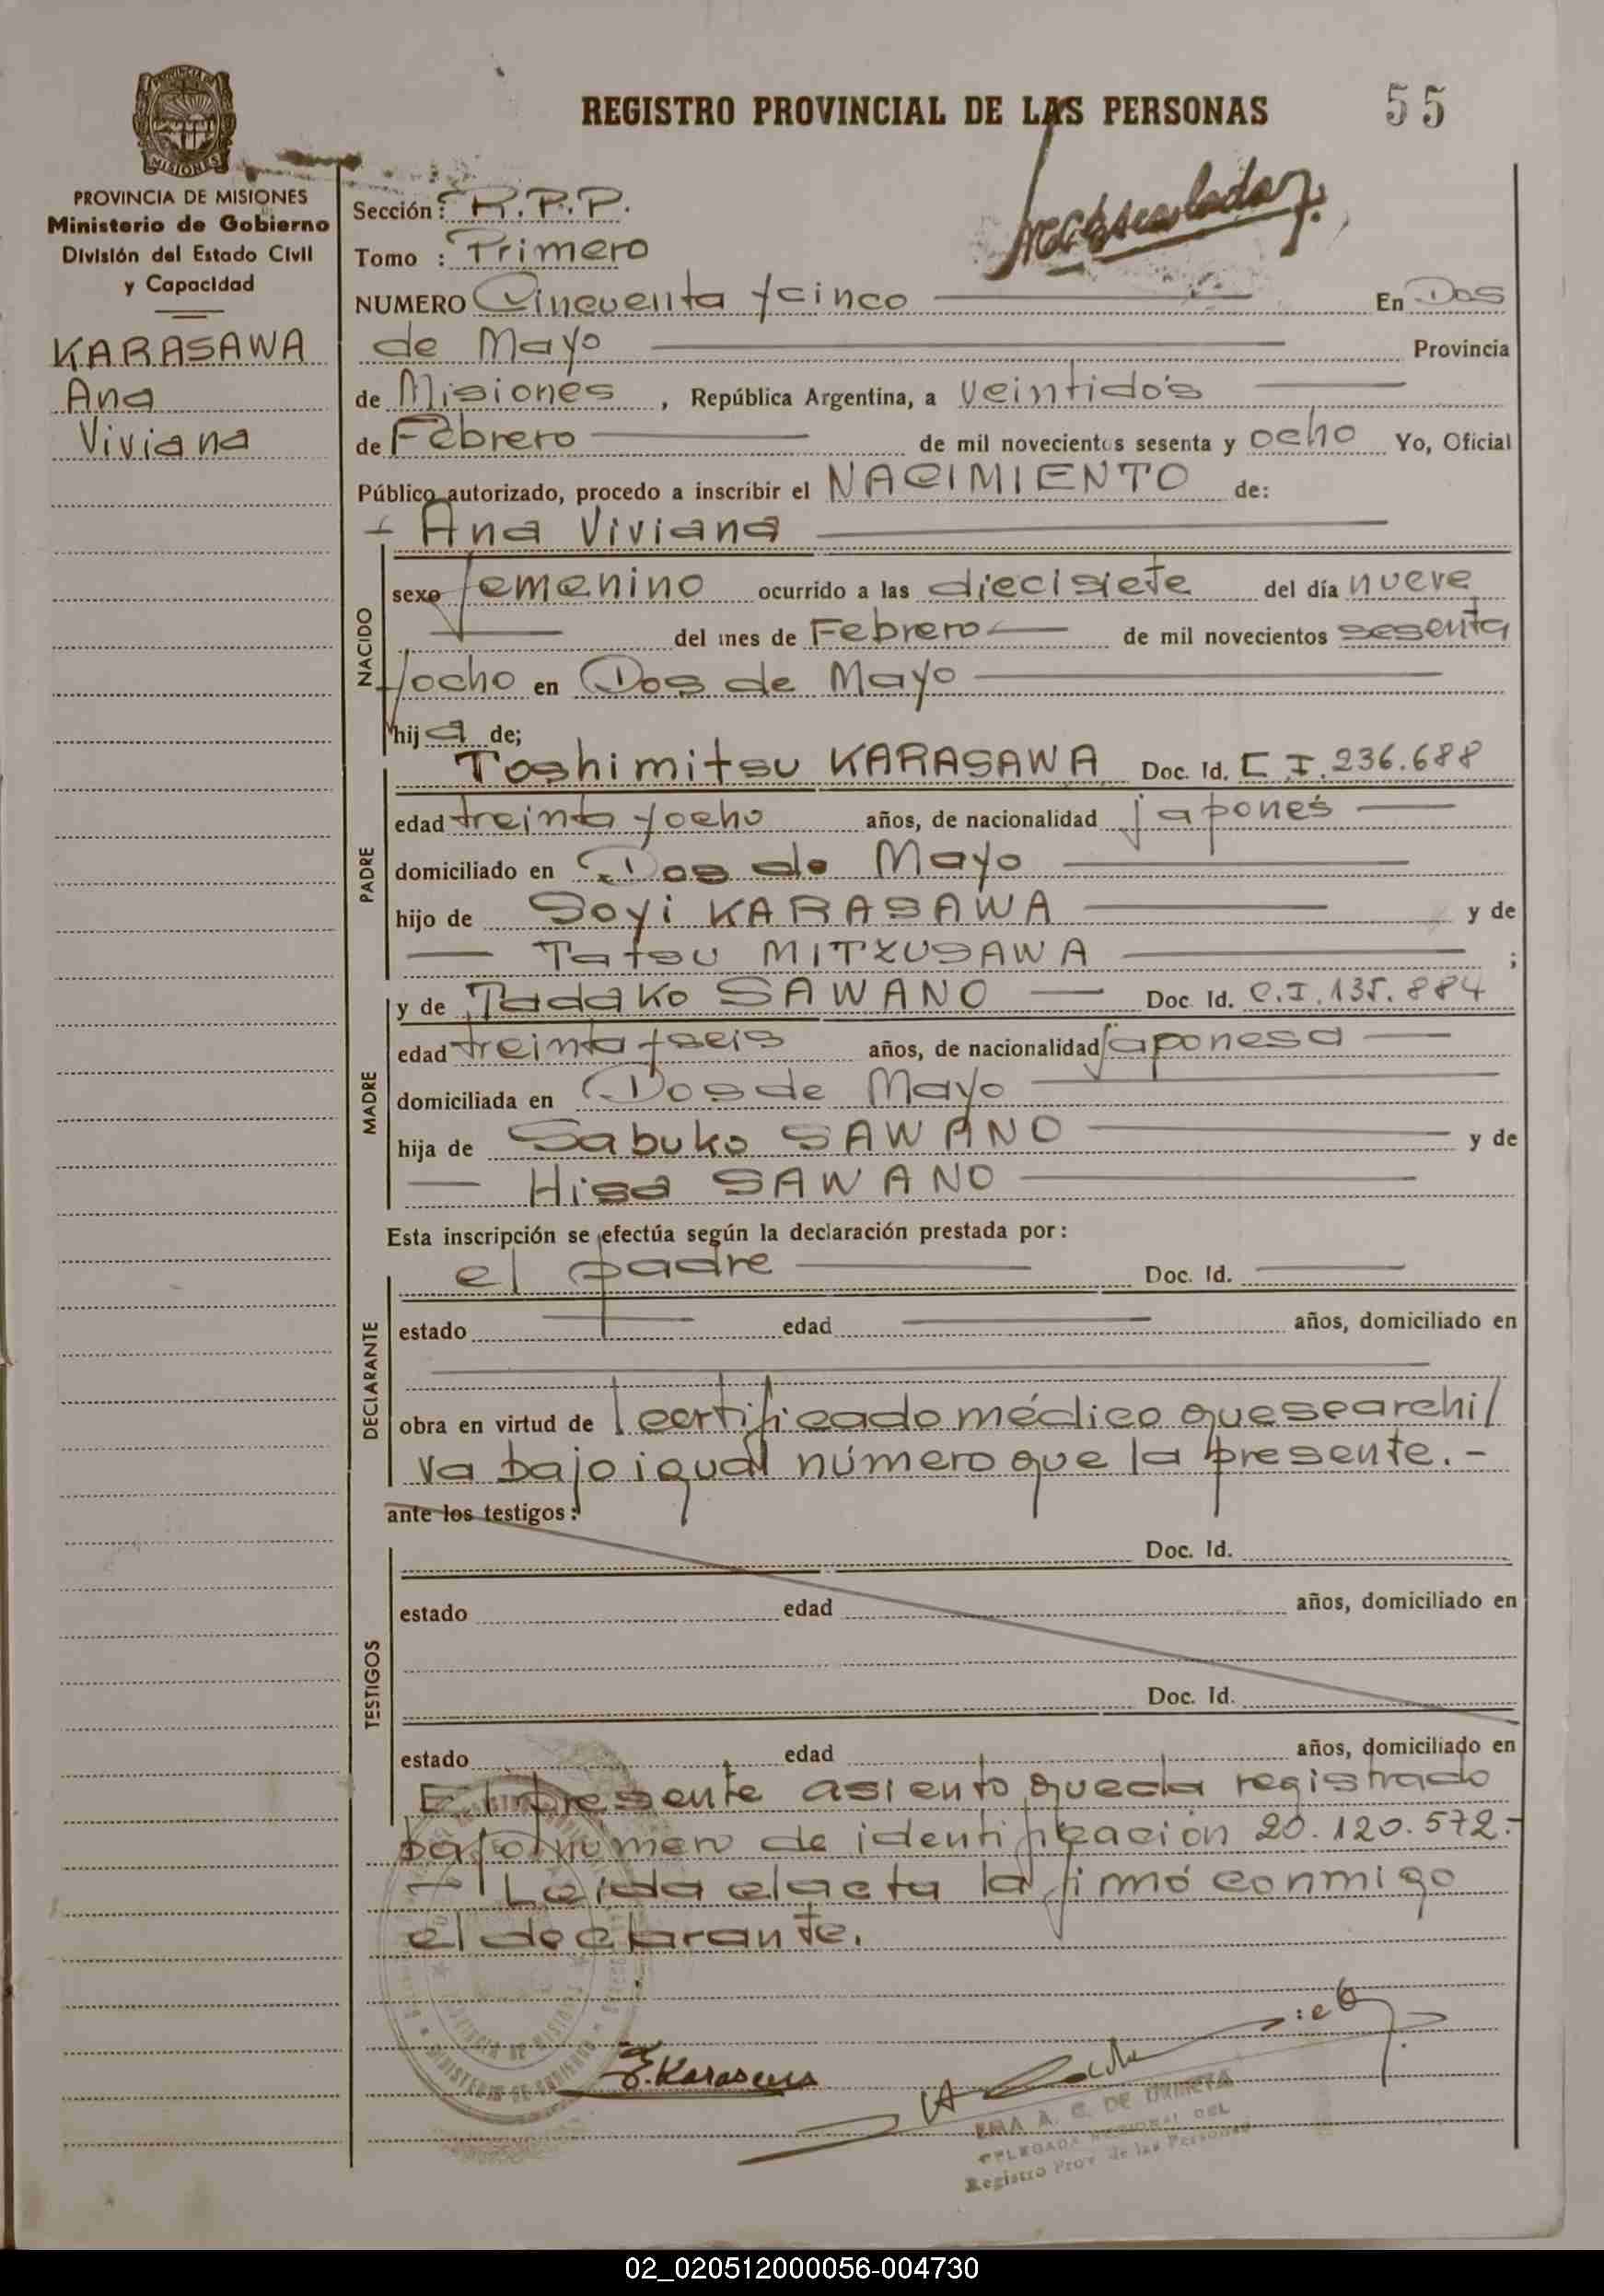 REGISTRO PROVINCIAL DE LAS PERSONAS 55
PROVINCIA DE MISIONES
Ministerio de Gobierno
División del Estado Civil
y Capacidad
KARASAWA
Ana
Viviana
Sección: R.P.P.
Tomo : Primero
NUMERO Cincuenta y cinco En Dos
de Mayo Provincia
de Misiones, República Argentina, a veintidós
de Febrero de mil novecientos sesenta y ocho Yo, Oficial
Público autorizado, procedo a inscribir el NACIMIENTO de:
Ana Viviana
NACIDO
sexo femenino ocurrido a las diecisiete del día nueve
del mes de Febrero de mil novecientos sesenta
y ocho en Dos de Mayo
hija de;
PADRE
Toshimitsu KARASAWA Doc. Id. C.I. 236.688
edad treinta y ocho años, de nacionalidad japonés
domiciliado en Dos de Mayo
hijo de Soyi KARASAWA y de
Tatsu MITZUSAWA ;
MADRE
y de Tadako SAWANO Doc. Id. C.I. 135.884
edad treinta y seis años, de nacionalidad japonesa
domiciliada en Dos de Mayo
hija de Sabuko SAWANO y de
Hisa SAWANO
Esta inscripción se efectúa según la declaración prestada por:
DECLARANTE
el padre Doc. Id.
estado edad años, domiciliado en
obra en virtud de certificado médico que se archi/
va bajo igual número que la presente.-
ante los testigos:
TESTIGOS
Doc. Id.
estado edad años, domiciliado en
Doc. Id.
estado edad años, domiciliado en
El presente asiento queda registrado
bajo número de identificación 20.120.572.-
Leida el acta la firmó conmigo
el declarante.
Registro Prov. de las Personas
02_020512000056-004730